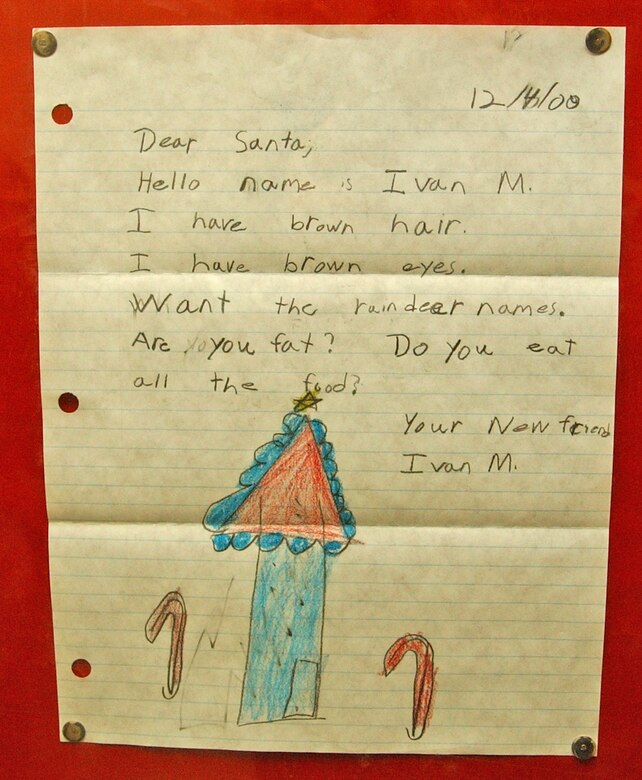 12/4/00
Dear Santa,
Hello name is Ivan M.
I have brown hair.
I have brown eyes.
Want the raindeer names.
Are you fat? Do you eat
all the food?
Your New friend
Ivan M.